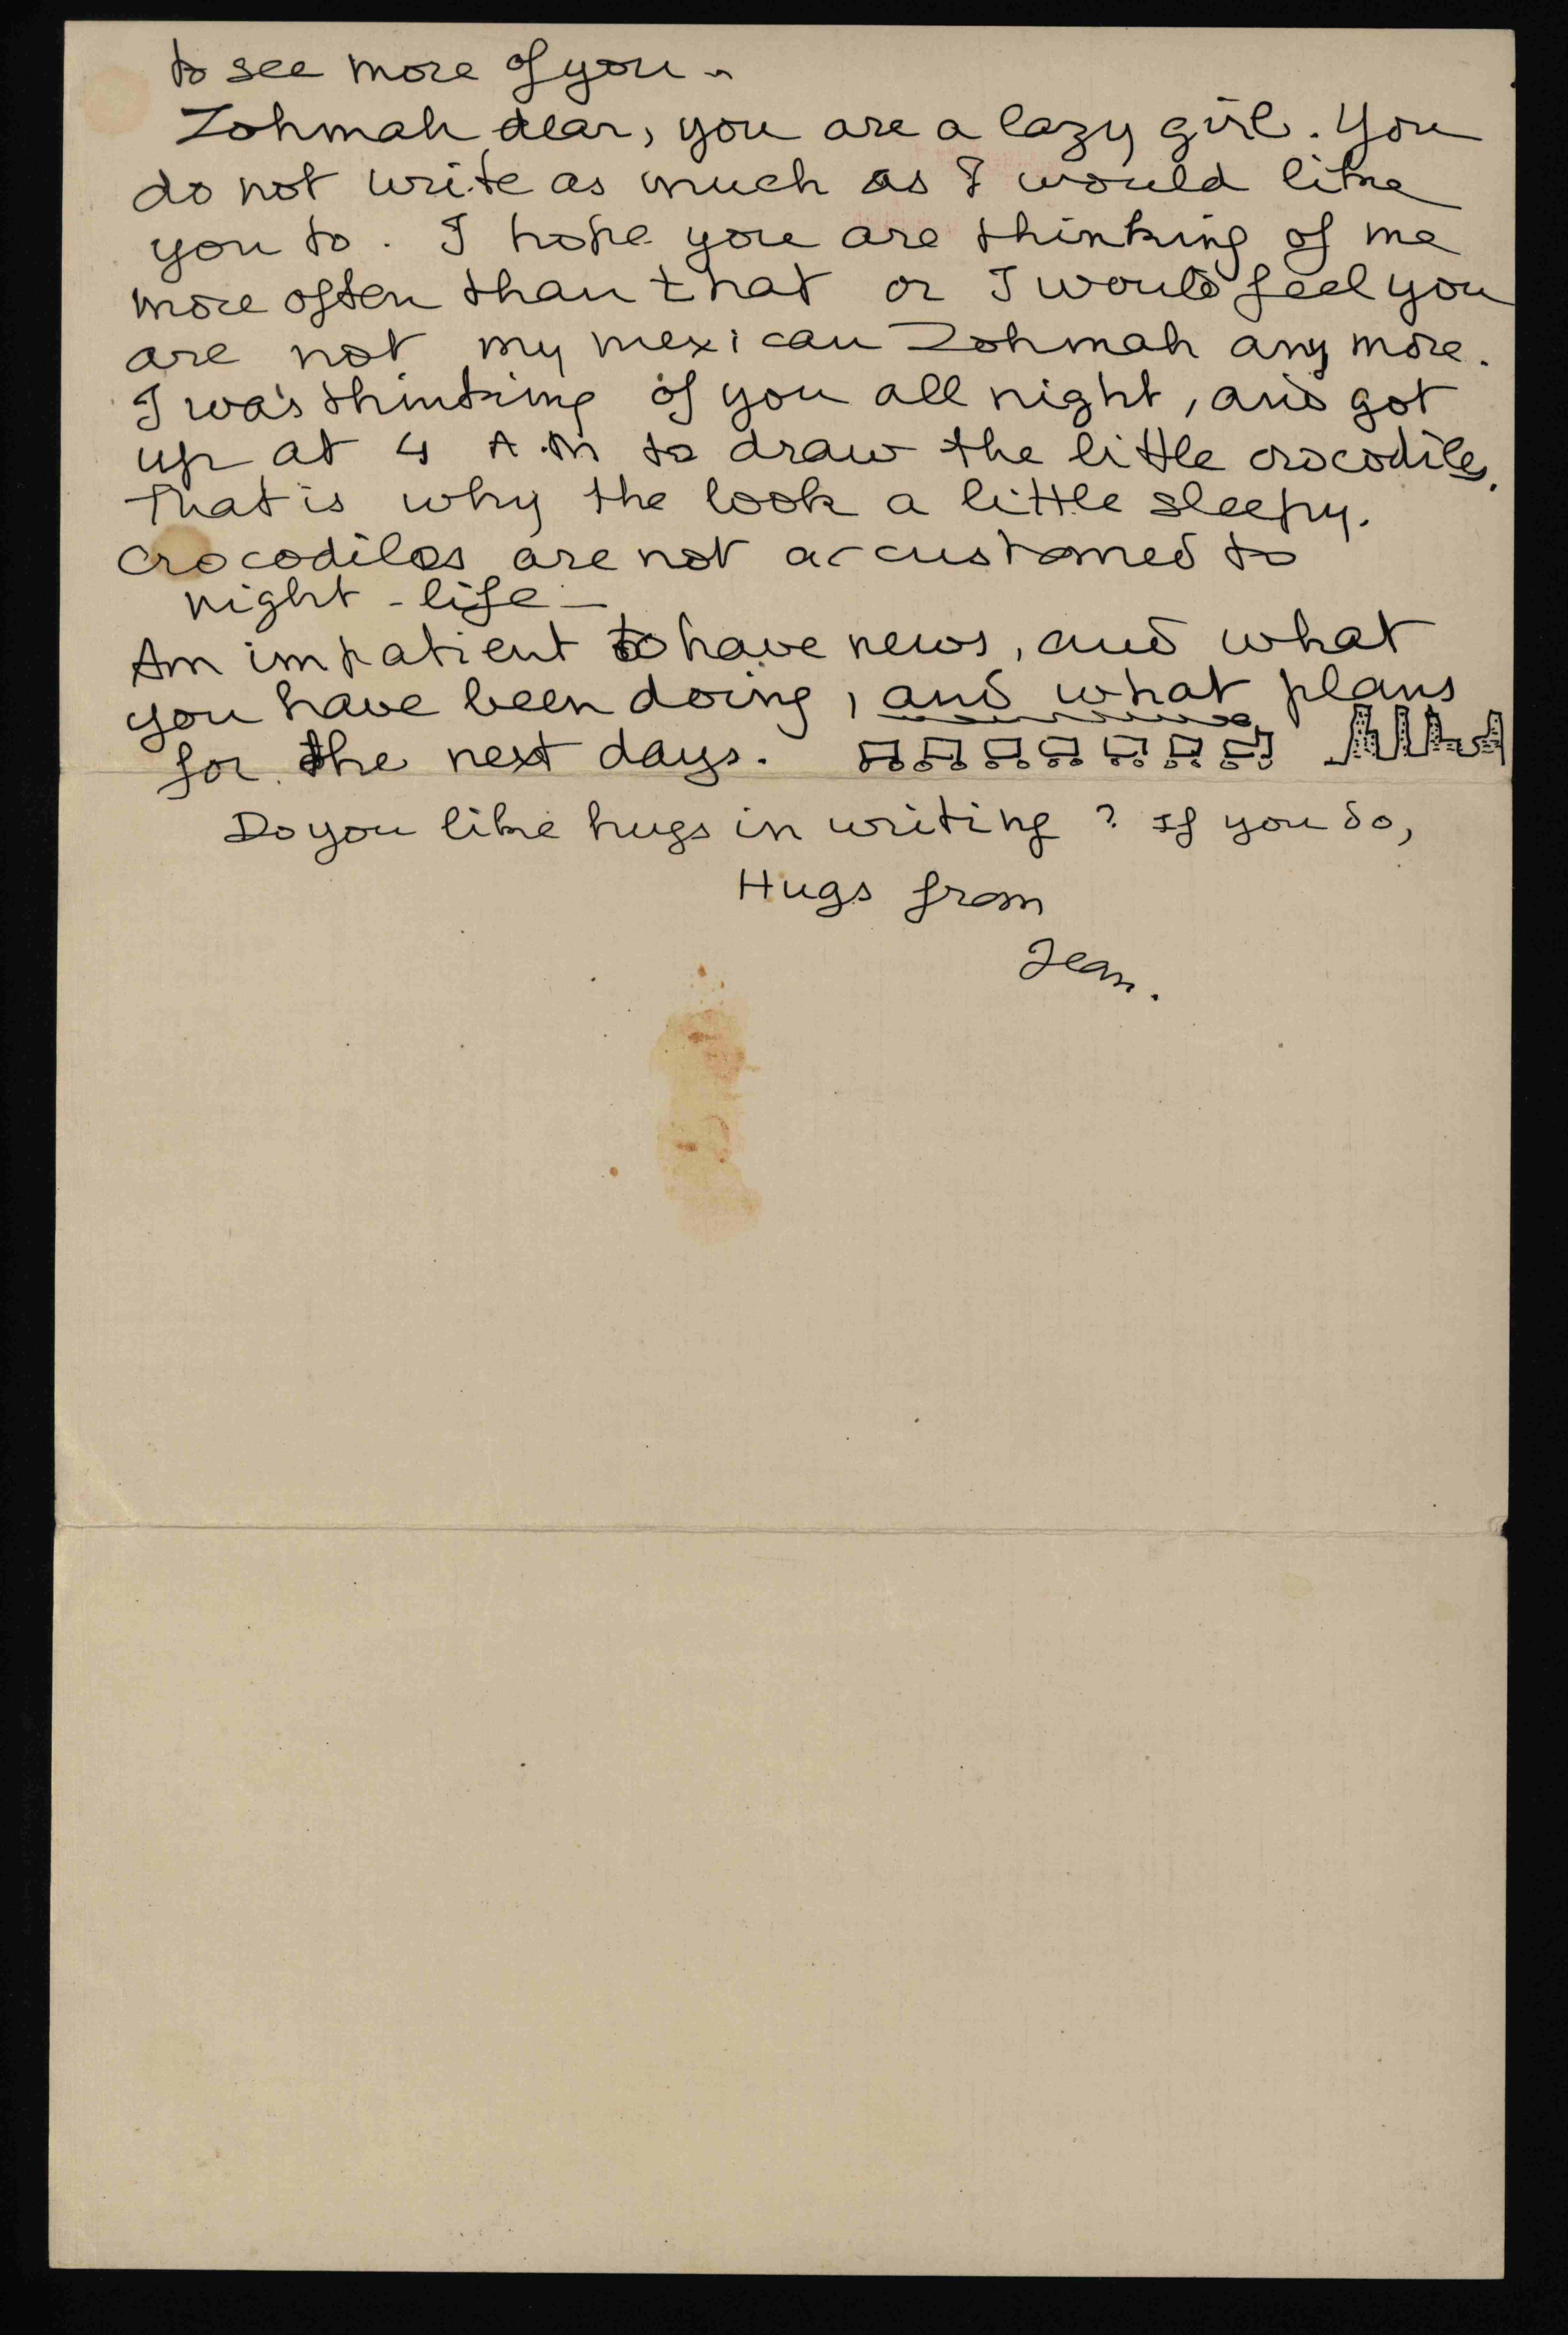 to see more of you -
Zohmah dear, you are a lazy girl. You
do not write as much as I would like
you to. I hope you are thinking of me
more often than that or I would feel you
are not my mexican Zohmah any more.
I was thinking of you all night, and got
up at 4 A.M to draw the little crocodiles.
That is why the look a little sleepy.
Crocodiles are not accustomed to
night-life-
Am impatient to have news, and what
you have been doing, and what plans
for the next days.
Do you like hugs in writing? If you do,
Hugs from
Jean.